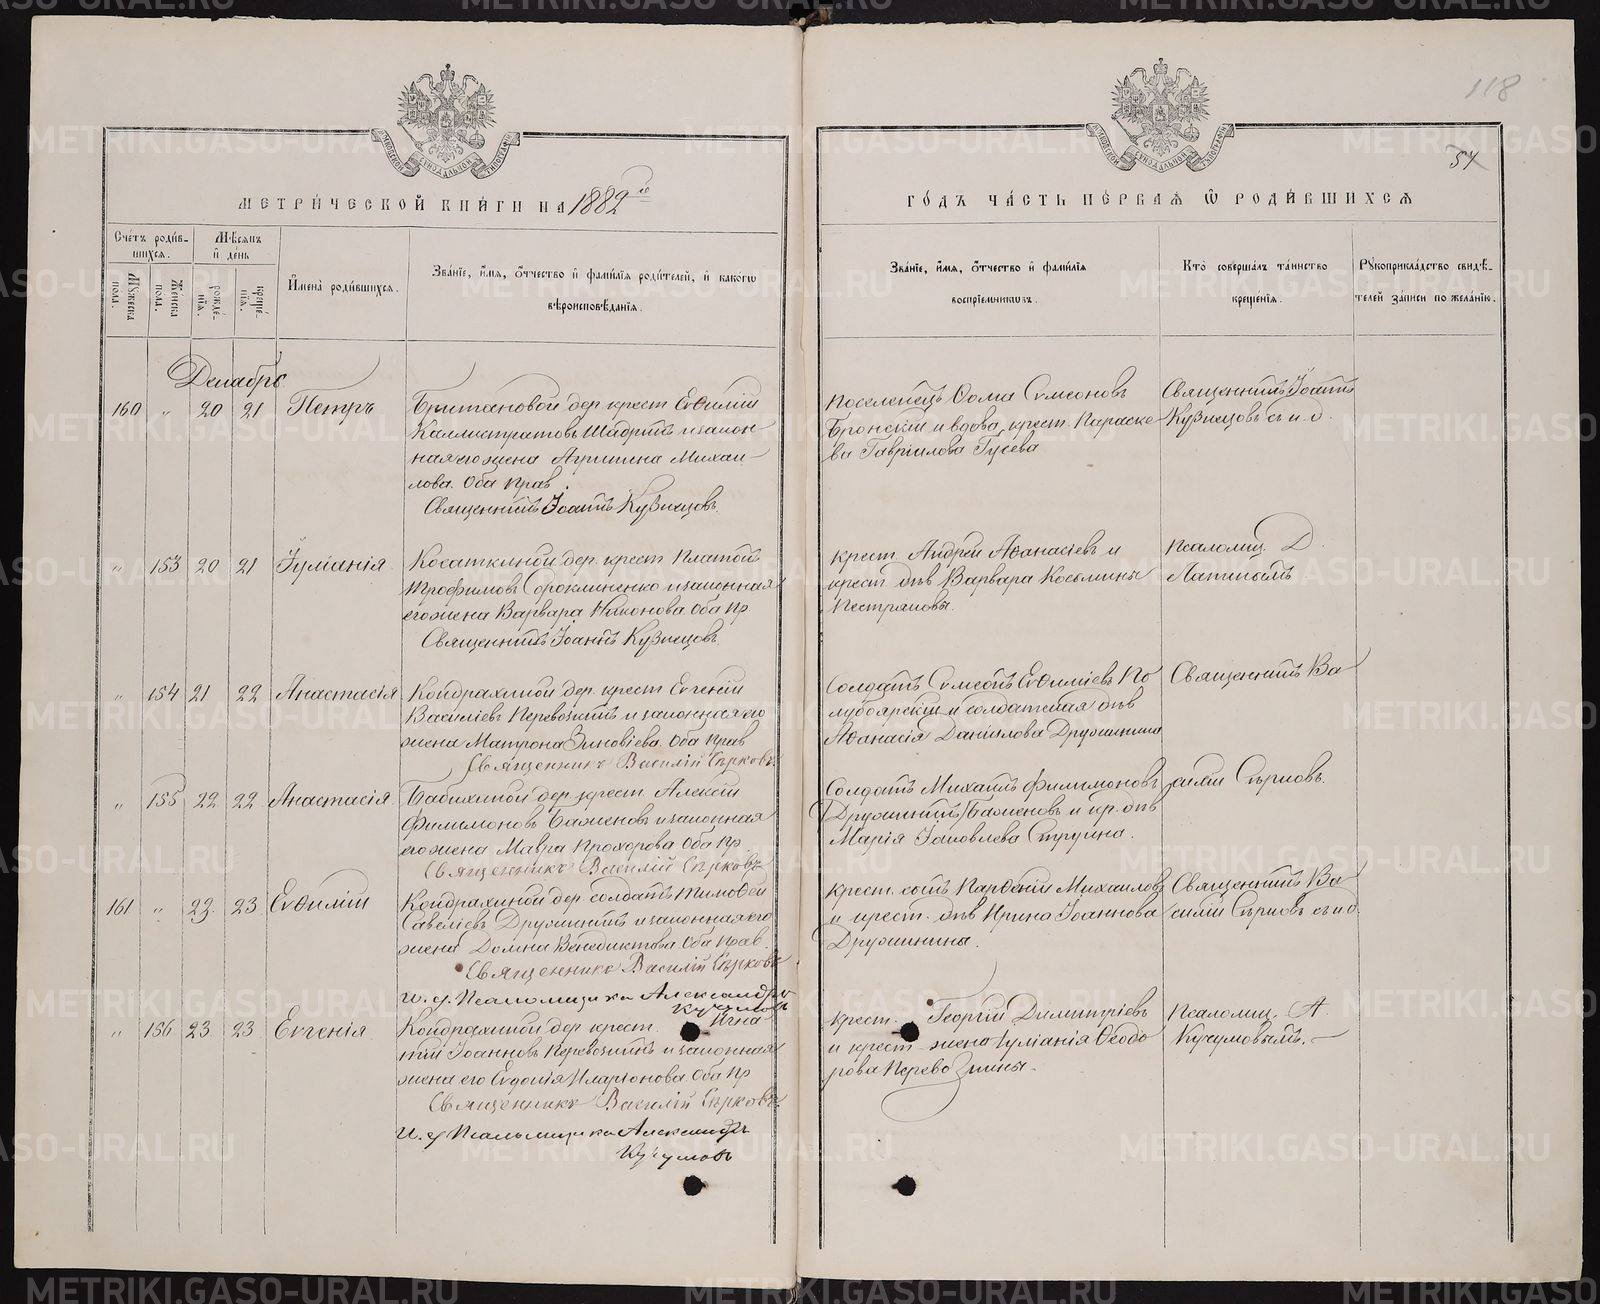 118
54
МЕТРИЧЕСКОЙ КНИГИ НА 1882 го
ГОДЪ ЧАСТЬ ПЕРВАЯ Ѡ РОДИВШИХСЯ
Счетъ родившихся.
Мѣсяцъ и день
Мужеска пола.
Женска пола.
рожденія.
крещенія.
Имена родившихся.
Званіе, имя, отчество и фамилія родителей, и какогѡ
вѣроисповѣданія.
Званіе, имя, отчество и фамилія
воспріемниковъ.
Кто совершалъ таинство
крещенія.
Рукоприкладство свидѣ-
телей записи по желанію.
Декабрь
160 " 20 21 Петръ
Британовой дер. крест. Евѳимій
Каллистратовъ Шадринъ и закон-
ная его жена Агрипена Михаи-
лова. Оба прав.
Священникъ Іоаннъ Кузнецовъ.
поселенецъ Ѳома Сѵмеоновъ
Бронскій и вдова, крест. Параске
ва Гавріилова Гусева
Священникъ Іоаннъ
Кузнецовъ с и. о.
" 153 20 21 Іуліанія
Косаткиной дер. крест. Платонъ
Трофимовъ Сороклиненко и законная
его жена Варвара Никонова. Оба пр.
Священникъ Іоаннъ Кузнецовъ
крест. Андрей Аѳанасіевъ и
крест. дѣв. Варвара Косьмины
Пестряковы.
Псаломщ. Д.
Лапинымъ.
" 154 21 22 Анастасія
Кондрахиной дер. крест. Евгеній
Василіевъ Перевозкинъ и законная его
жена Матрона Зиновіева. Оба прав.
Священникъ Василій Сѣрковъ
Солдатъ Сѵмеонъ Евѳиміевъ По
лубоярскій и солдатская дѣв.
Аѳанасія Даніилова Дружинина
Священникъ Ва
" 155 22 22 Анастасія.
Бабихиной дер. крест. Алексій
Филимоновъ Баженовъ и законная
его жена Мавра Прохорова. Оба пр.
Священникъ Василій Сѣрковъ
Солдатъ Михаилъ Филимоновъ
Дружининъ/Баженовъ и кр. дѣв.
Марія Іаковлева Струина.
силій Сѣрковъ.
161 " 22. 23 Евѳимій
Кондрахиной дер. солдатъ Тимоѳей
Савеліевъ Дружининъ и законная его
жена Домна Венедиктова. Оба прав.
Священникъ Василій Сѣрковъ
и. д. Псаломщика Александръ
Кучумовъ
крест. сынъ Парѳеній Михаиловъ
и крест. дѣв. Ирина Іоаннова
Дружинины.
Священникъ Ва
силій Сѣрковъ с и о.
" 156 23 23 Евгенія
Кондрахиной дер. крест. Игна-
тій Іоанновъ Перевозкинъ и законная
жена его Евдокія Иларіонова. Оба пр.
Священникъ Василій Сѣрковъ
И. д. Псаломщика Александръ
Кучумовъ
крест. Георгій Димитріевъ
и крест. жена Іуліанія Ѳеодо
рова Перевозкины.
Псаломщ. А.
Кучумовымъ.